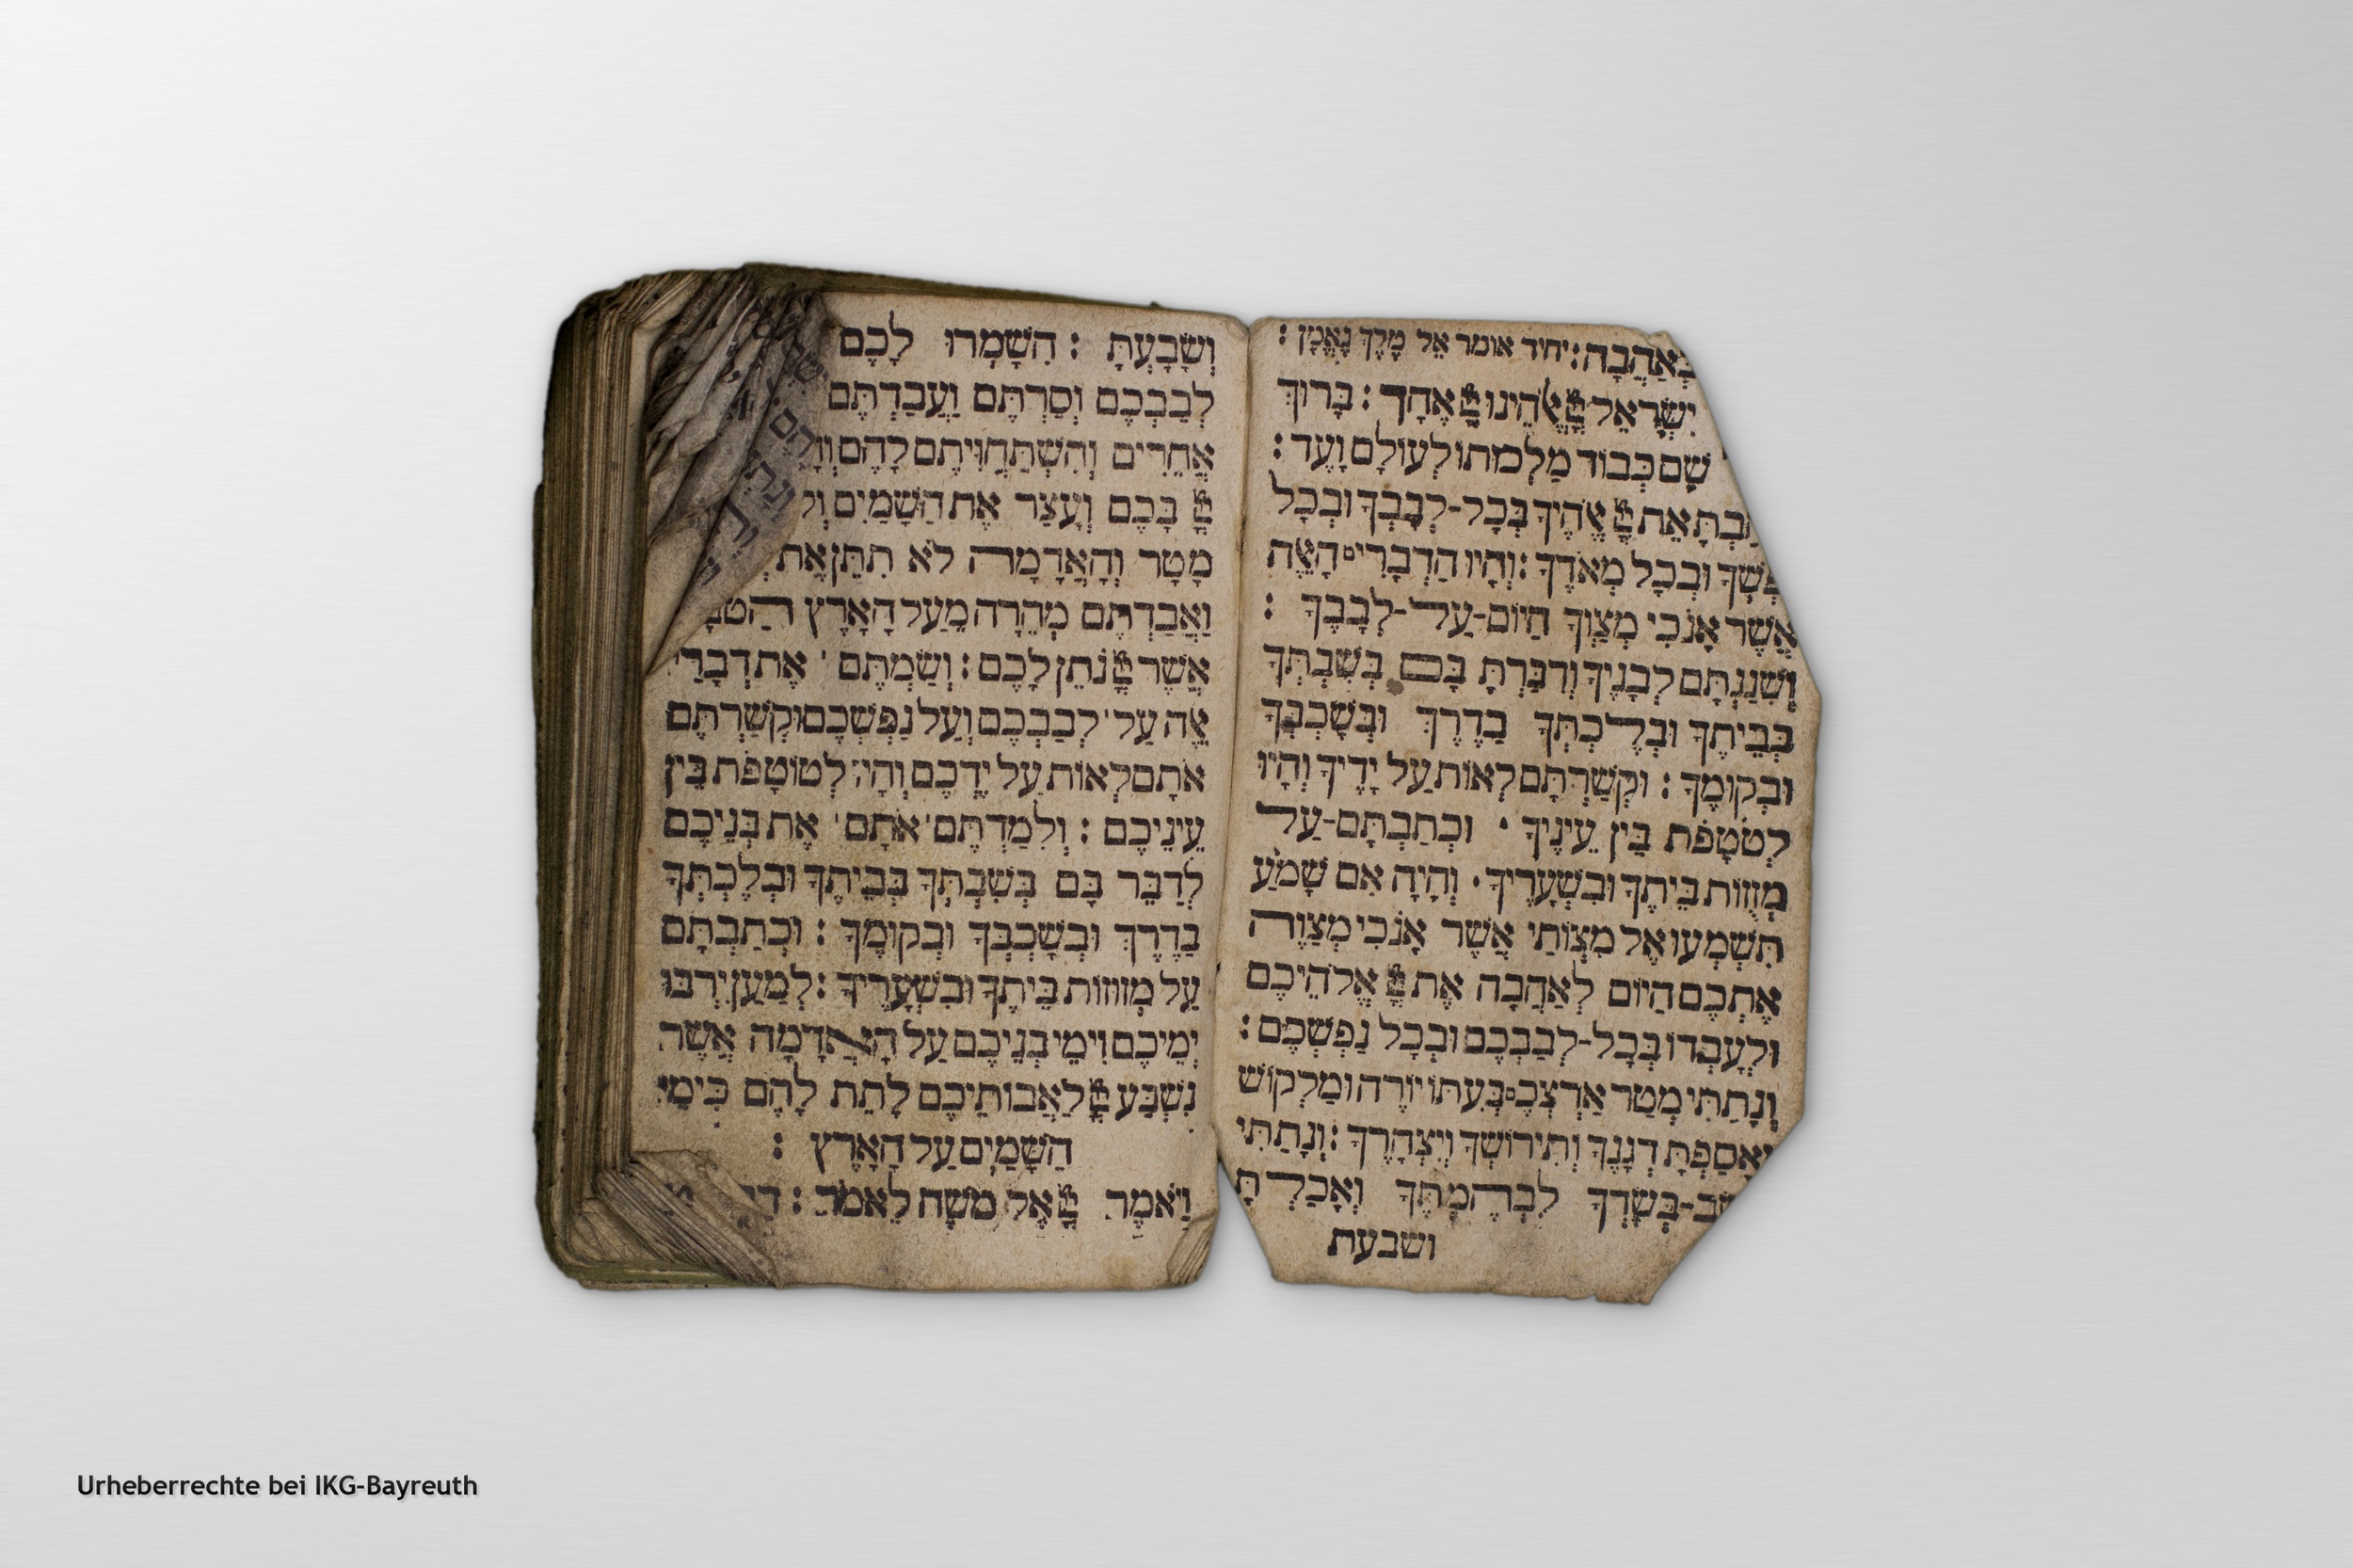 בְּאַהֲבָה: יחיד אומר אֵל מֶלֶךְ נֶאֱמָן:
יִשְׂרָאֵל יְיָ ﭏהֵינוּ יְיָ אֶחָד: בָּרוּךְ
שֵׁם כְּבוֹד מַלְכותוֹ לְעוֹלָם וָעֶד:
אֵת יְיָ ﭏהֶיךָ בְּכָל-לְבָבְךָ וּבְכָל
וּבְכָל מְאֹדֶךָ: וְהָיוּ הַדְּבָרִים הָﭏה
אֲשֶׁר אָנֹכִי מְצַוְּךָ הַיּוֹם-עַל-לְבָבֶךָ:
וְשִׁנַּנְתָּם לְבָנֶיךָ וְדִבַּרְתָּ בָּם בְּשִׁבְתְּךָ
בְּבֵיתֶךָ וּבְלֶכְתְּךָ בַדֶּרֶךְ וּבְשָׁכְבְּךָ
וּבְקוּמֶךָ: וּקְשַׁרְתָּם לְאוֹת עַל יָדֶיךָ וְהָיוּ
לְטֹטָפֹת בֵּין עֵינֶיךָ · וּכְתַבְתָּם-עַל
מְזֻזוֹת בֵּיתֶךָ וּבִשְׁעָרֶיךָ · וְהָיָה אִם שָׁמֹעַ
תִּשְׁמְעוּ אֶל מִצְוֹתַי אֲשֶׁר אָנֹכִי מְצַוֶּה
אֶתְכֶם הַיּוֹם לְאַהֲבָה אֶת יְיָ אֱלֹהֵיכֶם
וּלְעָבְדוֹ בְּכָל-לְבַבְכֶם וּבְכָל נַפְשְׁכֶם:
וְנָתַתִּי מְטַר אַרְצְכֶם בְּעִתּוֹ יוֹרֶה וּמַלְקוֹשׁ
וְאָסַפְתָּ דְגָנֶךָ וְתִירוֹשְׁךָ וְיִצְהָרֶךָ: וְנָתַתִּי
בְּשָׂדְךָ לִבְהֶמְתֶּךָ וְאָכַלְתָּ
ושבעת
וְשָׂבָעְתָּ: הִשָּׁמְרוּ לָכֶם
לְבַבְכֶם וְסַרְתֶּם וַעֲבַדְתֶּם
אֲחֵרִים וְהִשְׁתַּחֲוִיתֶם לָהֶם
יְיָ בָּכֶם וְעָצַר אֶת הַשָּׁמַיִם
מָטָר וְהָאֲדָמָה לֹא תִתֵּן אֶת
וַאֲבַדְתֶּם מְהֵרָה מֵעַל הָאָרֶץ
אֲשֶׁר יְיָ נֹתֵן לָכֶם: וְשַׂמְתֶּם אֶת דְּבָרַי
ﭏה עַל לְבַבְכֶם וְעַל נַפְשְׁכֶם וּקְשַׁרְתֶּם
אֹתָם לְאוֹת עַל יֶדְכֶם וְהָיוּ לְטוֹטָפֹת בֵּין
עֵינֵיכֶם: וְלִמַּדְתֶּם אֹתָם אֶת בְּנֵיכֶם
לְדַבֵּר בָּם בְּשִׁבְתְּךָ בְּבֵיתֶךָ וּבְלֶכְתְּךָ
בַדֶּרֶךְ וּבְשָׁכְבְּךָ וּבְקוּמֶךָ: וּכְתַבְתָּם
עַל מְזוּזוֹת בֵּיתֶךָ וּבִשְׁעָרֶיךָ: לְמַעַן יִרְבּוּ
יְמֵיכֶם וִימֵי בְנֵיכֶם עַל הָאֲדָמָה אֲשֶׁר
נִשְׁבַּע יְיָ לַאֲבוֹתֵיכֶם לָתֵת לָהֶם כִּימֵי
הַשָּׁמַיִם עַל הָאָרֶץ:
וַיֹּאמֶר יְיָ אֶל מֹשֶׁה לֵאמֹר:
Urheberrechte bei IKG-Bayreuth